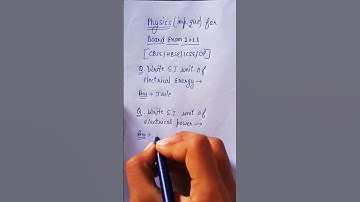 Physics (imp que) for
Board Exam 2023
[CBSE/HBSE/ICSE/UP]
Q. Write S I unit of
electrical energy →
Ans → Joule
Q. Write SI unit of
electrical power →
Ans →